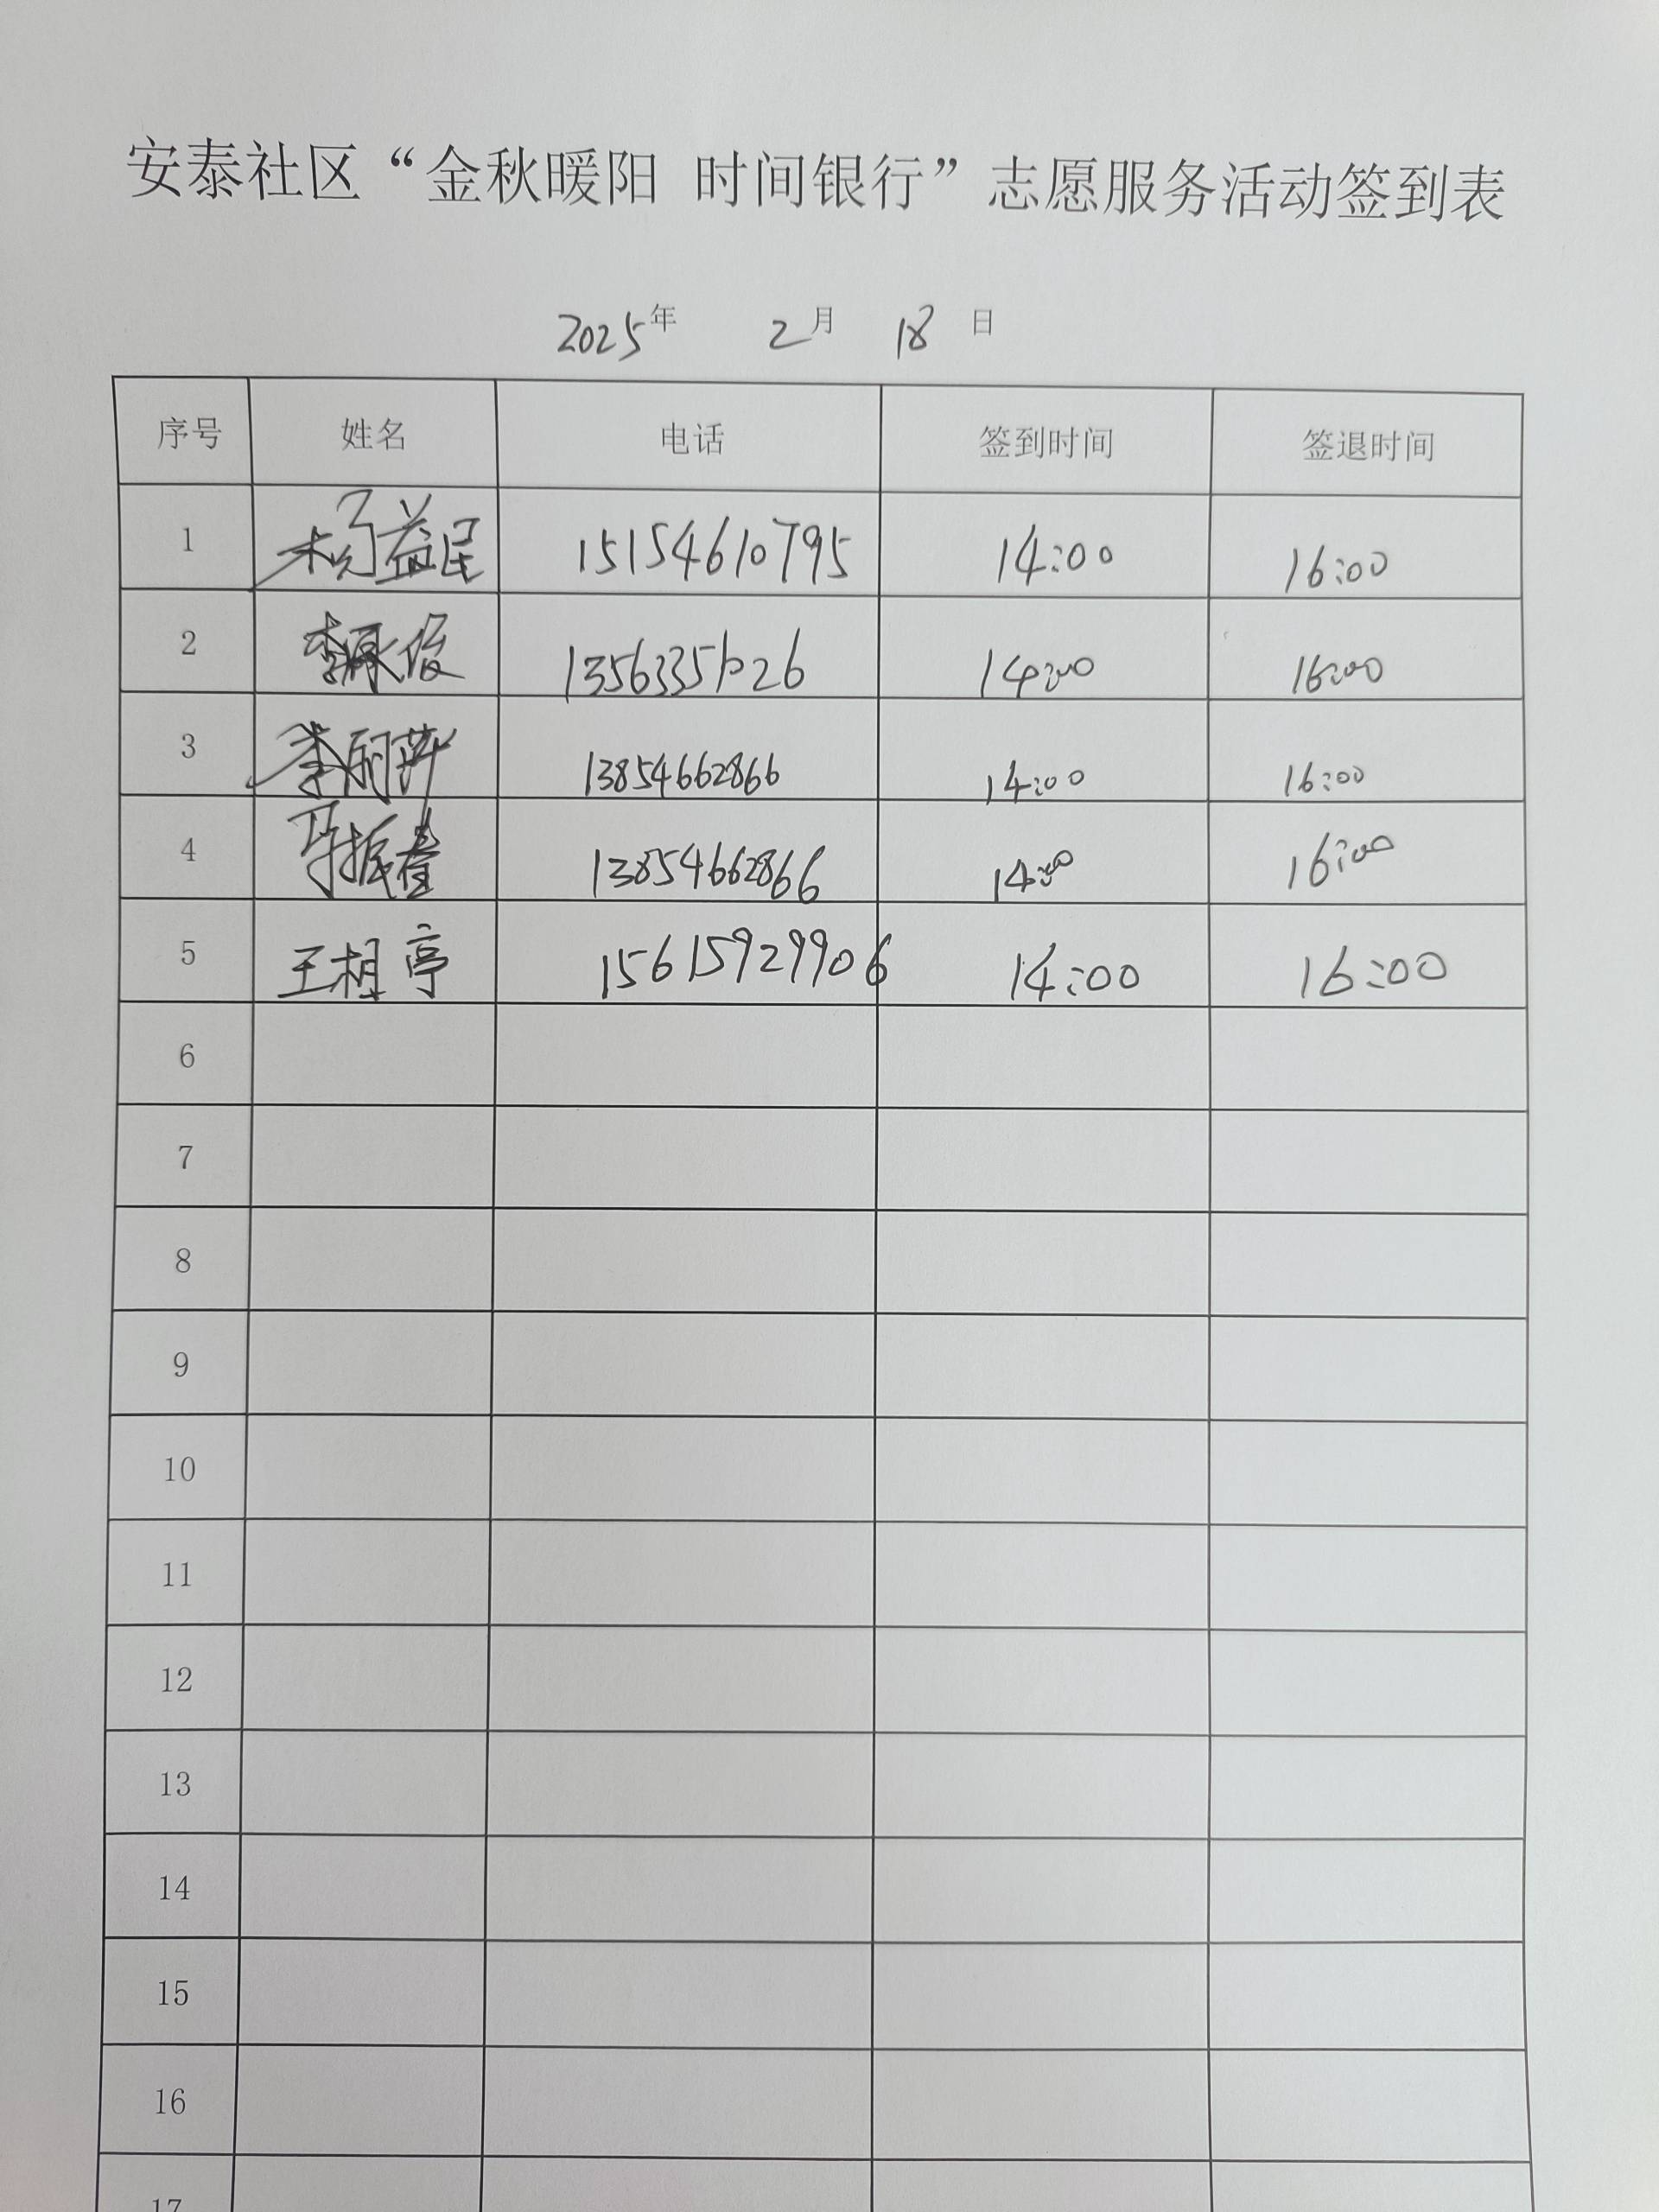 安泰社区“金秋暖阳 时间银行”志愿服务活动签到表
2025年 2月 18日
序号 姓名 电话 签到时间 签退时间
1 杨益民 15154610795 14:00 16:00
2 14:00 16:00
3 李丽萍 13854662866 14:00 16:00
4 13854662866 14:00 16:00
5 15615929906 14:00 16:00
6
7
8
9
10
11
12
13
14
15
16
17